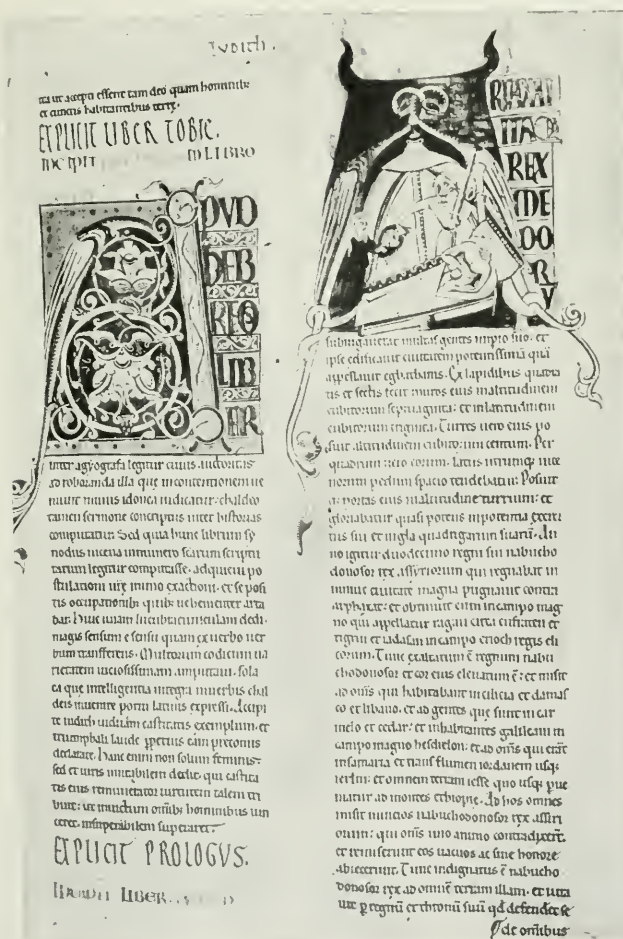 IVDITh.
ita ut accepti essent tam deo quam hominibꝫ
et cunctis habitantibus terrę.
EXPLICIT LIBER TOBIE.
INCIPIT IN LIBRO
APUD
HEB
REO
LIB
ER
inter agyografa legitur cuius auctoritas
ad roboranda illa que in contentionem ue
niunt minus idonea iudicatur. chaldeo
tamen sermone conscriptus inter historias
computatur. Sed quia hunc librum sy
nodus nicena in numero scārum scriptu
rarum legitur computasse. adquieui po
stulationi urę immo exactioni. et se posi
tis occupationibꝫ quibꝫ uehementer arta
bar. huic unam lucubratiunculam dedi.
magis sensum e sensu quam ex uerbo uer
bum transferens. Multorum codicum ua
rietatem uiciosissimam amputaui. sola
ea que intelligentia integra in uerbis chal
deis inuenire potui latinis expressi. Accipi
te iudith uiduam castitatis exemplum. et
triumphali laude ꝑpetuis eam preconiis
declarate. hanc enim non solum feminis.
sed et uiris imitabilem dedit. qui castita
tis eius remunerator uirtutem talem tri
buit: ut inuictum omībꝫ hominibus uin
ceret. insuperabilem superaret.
EXPLICIT PROLOGVS.
LIBER
ARPhAXAT
ITAQ
REX
ME
DO
R
V
subiugauerat multas gentes impio suo. et
ipse edificauit ciuitatem potentissimā quā
appellauit egbathanis. Ex lapidibus quadra
tis et sectis fecit muros eius in altitudinem
cubitorum septuaginta: et in latitudinem
cubitorum triginta. Turres uero eius po
suit altitudinem cubitorum centum. Per
quadrum uero eorum. latus utrumqꝫ uice
norum pedum spacio tendebatur. Posuit
qꝫ portas eius in altitudine turrium: et
gloriabatur quasi potens in potentia exerci
tus sui et in gla quadrigarum suarū. An
no igitur duodecimo regni sui nabucho
donosor rex assyriorum qui regnabat in
niniue ciuitate magna pugnauit contra
arphaxat: et obtinuit eum in campo mag
no qui appellatur ragau circa eufraten et
tigrin et iadasan in campo erioch regis eli
corum. Tunc exaltatum ē regnum nabu
chodonosor et cor eius eleuatum ē: et misit
ad oms̄ qui habitabant in cilicia et damas
co et libano. et ad gentes que sunt in car
melo et cedar: et inhabitantes galileam in
campo magno hesdrelon: et ad om̄s qui erāt
in samaria et trans flumen iordanem usqꝫ
ierlm: et omnem terram iesse quo usqꝫ ꝑue
niatur ad montes ethiopie. Ad hos omnes
misit nuncios nabuchodonosor rex assiri
orum: qui om̄s uno animo contradixerūt.
et remiserunt eos uacuos ac sine honore
abiecerunt. Tunc indignatus ē nabucho
donosor rex ad omnē terram illam. et iura
uit ꝑ regnū et thronū suū qđ defenderet se
de omībus